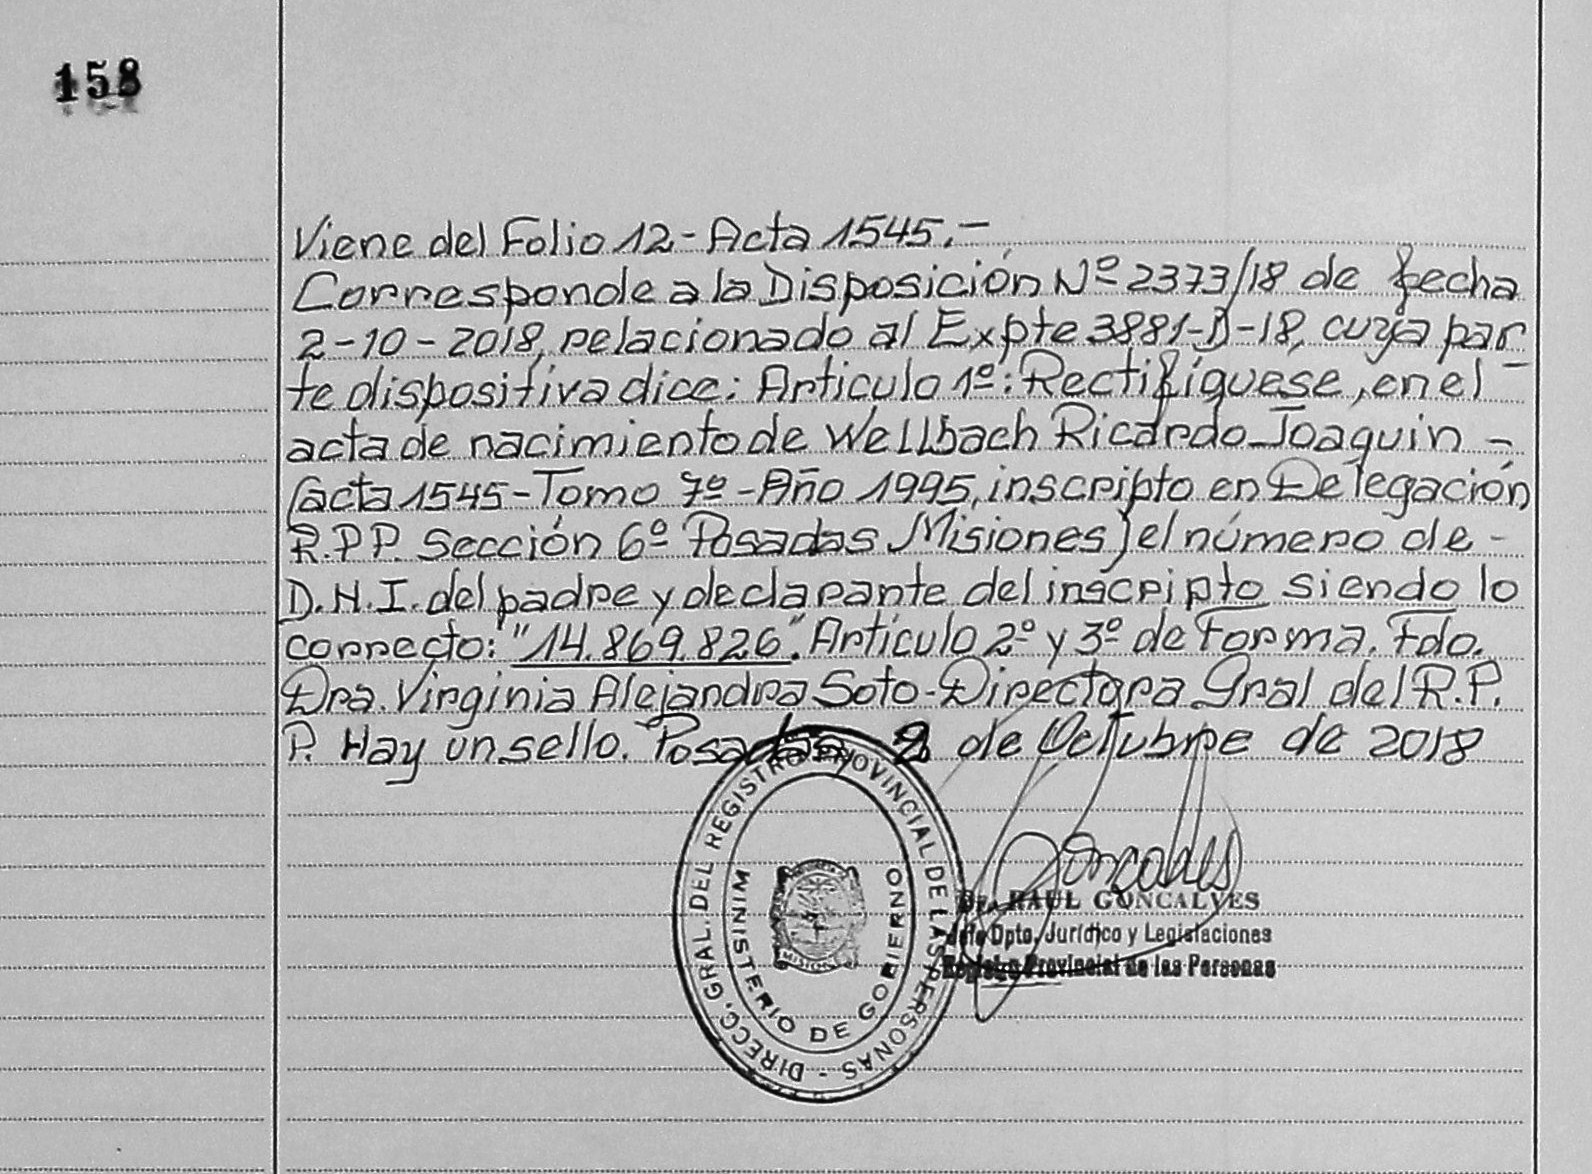 158
Viene del Folio 12 - Acta 1545.-
Corresponde a la Disposición Nº 2373/18 de fecha
2-10-2018, relacionado al Expte 3881-D-18, cuya par
te dispositiva dice: Articulo 1º: Rectifíquese, en el
acta de nacimiento de Wellbach Ricardo Joaquin -
(acta 1545 - Tomo 7º - Año 1995, inscripto en Delegación
R.P.P. Sección 6º Posadas Misiones) el número de -
D.N.I. del padre y declarante del inscripto siendo lo
correcto: "14.869.826". Artículo 2º y 3º de Forma. Fdo.
Dra. Virginia Alejandra Soto - Directora Gral del R.P.
P. Hay un sello. Posadas, 2 de Octubre de 2018
DIRECC. GRAL. DEL REGISTRO PROVINCIAL DE LAS PERSONAS -
MINISTERIO DE GOBIERNO
MISIONES
Goncalves
Dr. RAUL GONCALVES
Jefe Dpto. Jurídico y Legislaciones
Registro Provincial de las Personas